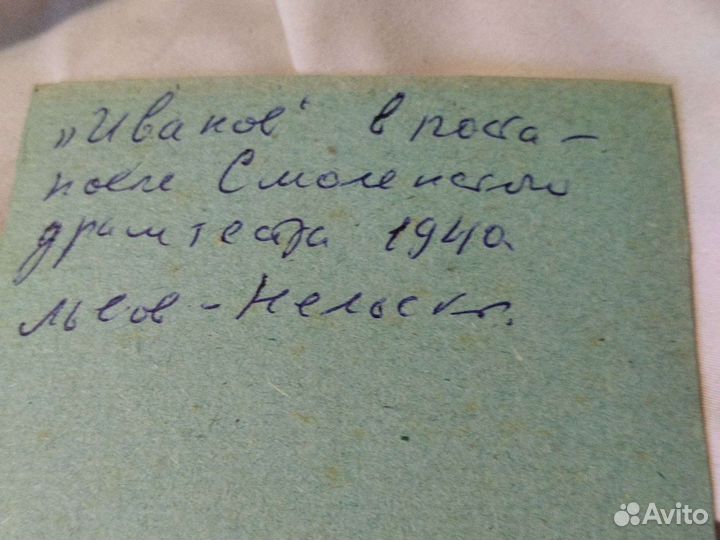 „Иванов“ в поста-
новке Смоленского
драмтеатра 1940.
Львов-Нельск.
Avito